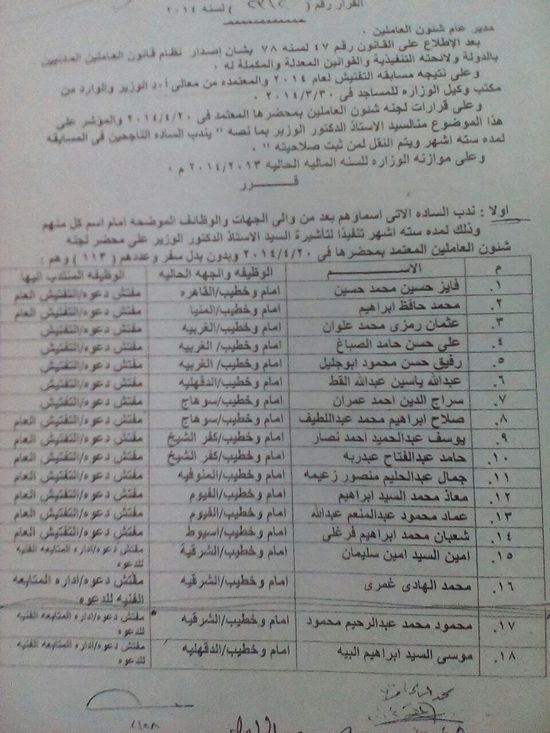 القرار رقم ( ) لسنه ٢٠١٤
مدير عام شئون العاملين .
بعد الإطلاع على القانون رقم ٤٧ لسنه ٧٨ بشان إصدار نظام قانون العاملين المدنيين
بالدولة ولائحته التنفيذية والقوانين المعدلة والمكملة له .
وعلى نتيجه مسابقه التفتيش لعام ٢٠١٤ والمعتمده من معالى أ.د الوزير والوارد من
مكتب وكيل الوزاره للمساجد فى ٢٠١٤/٣/٣٠ .
وعلى قرارات لجنه شئون العاملين بمحضرها المعتمد فى ٢٠١٤/٤/٢٠ والمؤشر على
هذا الموضوع منالسيد الاستاذ الدكتور الوزير بما نصه " يندب الساده الناجحين فى المسابقه
لمده سته اشهر ويتم النقل لمن ثبت صلاحيته " .
وعلى موازنه الوزاره للسنه الماليه الحاليه ٢٠١٤/٢٠١٣ م .
قـــرر
أولا : ندب الساده الاتى اسماؤهم بعد من والى الجهات والوظائف الموضحه امام اسم كل منهم
وذلك لمده سته اشهر تنفيذا لتاشيرة السيد الاستاذ الدكتور الوزير على محضر لجنه
شئون العاملين المعتمد بمحضرها فى ٢٠١٤/٤/٢٠ وبدون بدل سفر وعددهم ( ١١٣ ) وهم :
م الاســـم الوظيفه والجهه الحاليه الوظيفه المنتدب اليها
١. فايز حسين محمد حسين امام وخطيب/القاهره مفتش دعوه/التفتيش العام
٢. محمد حافظ ابراهيم امام وخطيب/المنيا مفتش دعوه/التفتيش العام
٣. عثمان رمزى محمد علوان امام وخطيب/الغربيه مفتش دعوه/التفتيش العام
٤. على حسن حامد الصباغ امام وخطيب/الغربيه مفتش دعوه/التفتيش العام
٥. رفيق حسن محمود ابوجليل امام وخطيب/الغربيه مفتش دعوه/التفتيش العام
٦. عبدالله ياسين عبدالله القط امام وخطيب/الدقهليه مفتش دعوه/التفتيش العام
٧. سراج الدين احمد عمران امام وخطيب/سوهاج مفتش دعوه/التفتيش العام
٨. صلاح ابراهيم محمد عبداللطيف امام وخطيب/سوهاج مفتش دعوه/التفتيش العام
٩. يوسف عبدالحميد احمد نصار امام وخطيب/كفر الشيخ مفتش دعوه/التفتيش العام
١٠. حامد عبدالفتاح عبدربه امام وخطيب/كفر الشيخ مفتش دعوه/التفتيش العام
١١. جمال عبدالحليم منصور زعيمه امام وخطيب/المنوفيه مفتش دعوه/التفتيش العام
١٢. معاذ محمد السيد ابراهيم امام وخطيب/الفيوم مفتش دعوه/التفتيش العام
١٣. عماد محمود عبدالمنعم عبدالله امام وخطيب/الفيوم مفتش دعوه/التفتيش العام
١٤. شعبان محمد ابراهيم فرغلى امام وخطيب/اسيوط مفتش دعوه/التفتيش العام
١٥. امين السيد امين سليمان امام وخطيب/الشرقية مفتش دعوه/اداره المتابعه الفنيه
للدعوه
١٦. محمد الهادى غمرى امام وخطيب/الشرقيه مفتش دعوه/اداره المتابعه
الفنيه للدعوه
١٧. محمود محمد عبدالرحيم محمود امام وخطيب/الشرقيه مفتش دعوه/اداره المتابعه الفنيه
للدعوه
١٨. موسى السيد ابراهيم البيه امام وخطيب/الدقهليه مفتش دعوه/اداره المتابعه الفنيه
للدعوه